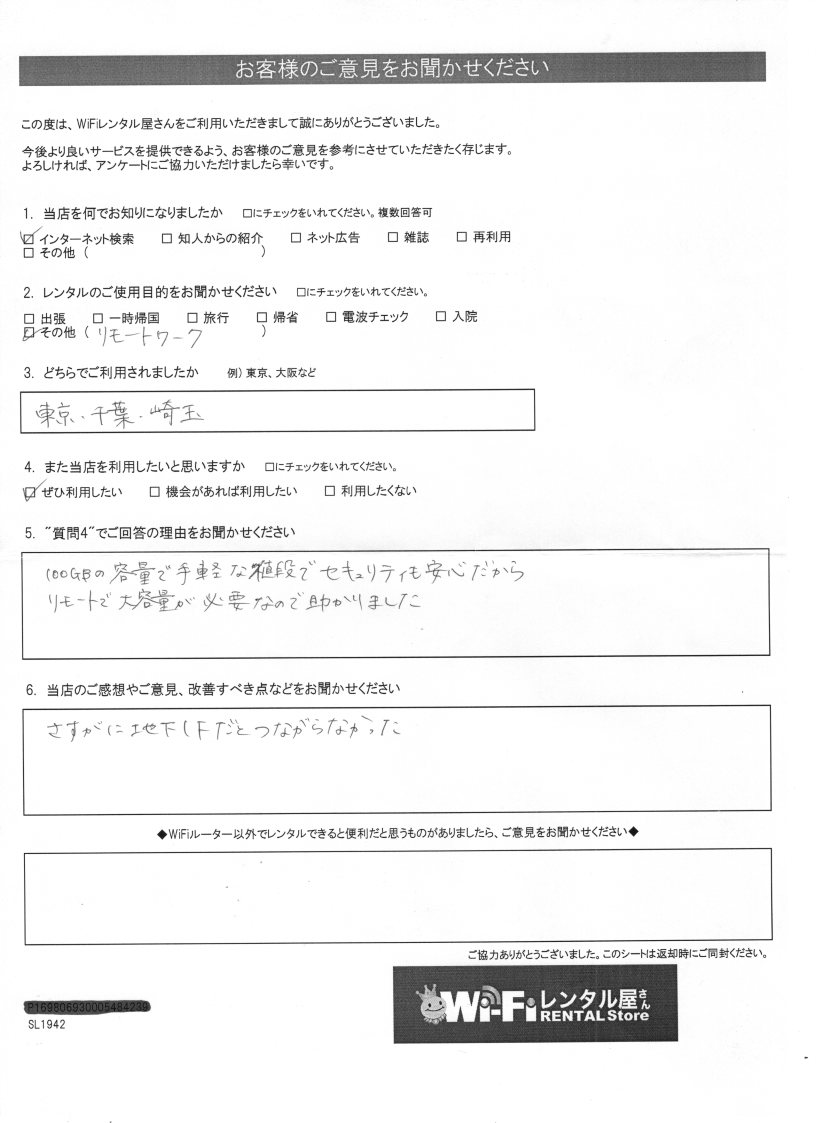 お客様のご意見をお聞かせください
この度は、WiFiレンタル屋さんをご利用いただきまして誠にありがとうございました。
今後より良いサービスを提供できるよう、お客様のご意見を参考にさせていただきたく存じます。
よろしければ、アンケートにご協力いただけましたら幸いです。
1. 当店を何でお知りになりましたか □にチェックをいれてください。複数回答可
☑インターネット検索 □ 知人からの紹介 □ ネット広告 □ 雑誌 □ 再利用
□ その他 ( )
2. レンタルのご使用目的をお聞かせください □にチェックをいれてください。
□ 出張 □ 一時帰国 □ 旅行 □ 帰省 □ 電波チェック □ 入院
☑その他 ( リモートワーク )
3. どちらでご利用されましたか 例) 東京、大阪など
東京・千葉・崎玉
4. また当店を利用したいと思いますか □にチェックをいれてください。
☑ぜひ利用したい □ 機会があれば利用したい □ 利用したくない
5. "質問4"でご回答の理由をお聞かせください
100GBの容量で手軽な値段でセキュリティも安心だから
リモートで大容量が必要なので助かりました
6. 当店のご感想やご意見、改善すべき点などをお聞かせください
さすがに地下1Fだとつながらなかった
◆WiFiルーター以外でレンタルできると便利だと思うものがありましたら、ご意見をお聞かせください◆
ご協力ありがとうございました。このシートは返却時にご同封ください。
Wi-Fiレンタル屋さん
RENTAL Store
SL1942